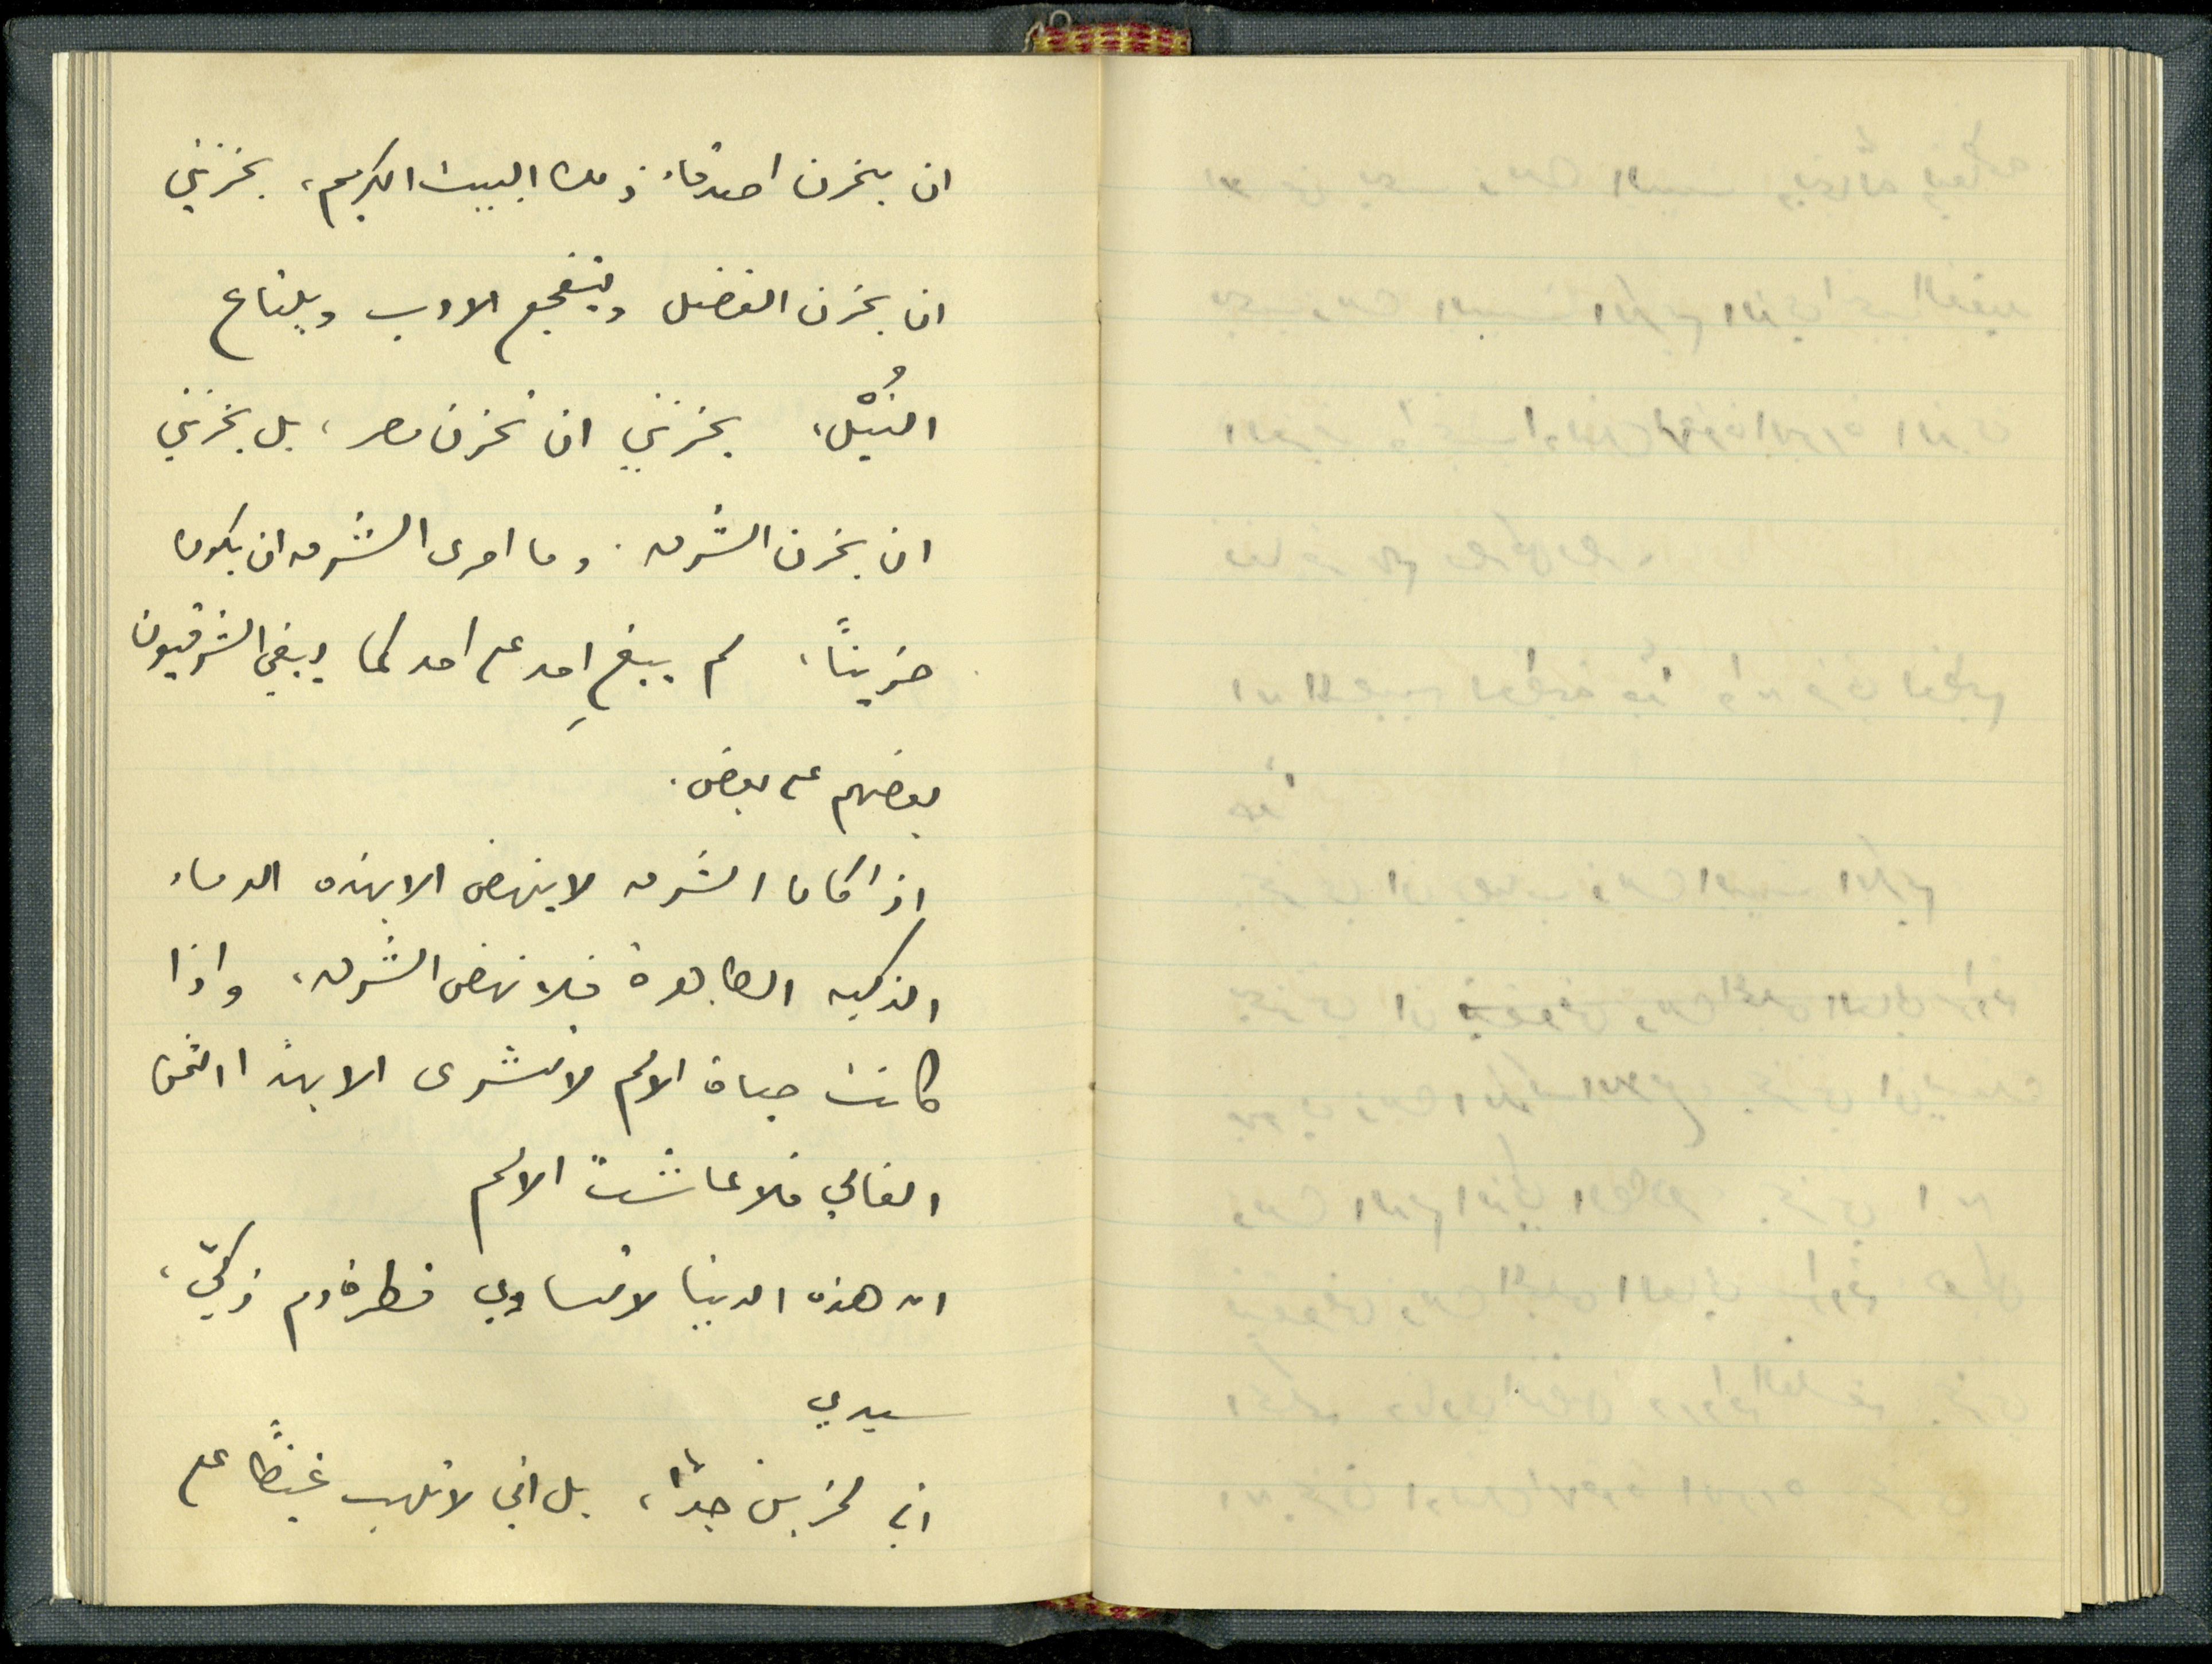 ان يحزن اصدقاء ذلك البيت الكريم، يحزنني
ان يحزن الفضل ويتفجع الادب ويلتاع
النُبْلُ، يحزنني ان تحزن مصر، بل يحزنني
ان يحزن الشرق. وما احرى الشرق ان يكون
حزيناً، لم يبغِ احد على احد كما يبغي الشرقيون
بعضهم على بعض.
اذا كان الشرق لا ينهض الا بهذه الدماء
الذكيه الطاهرة فلا نهض الشرق، واذا
كانت حياة الامم لا تشرى الا بهذا الثمن
الغالي فلا عاشت الامم
ان هذه الدنيا لا تساوي قطرة دم زكيّ،
سيدي
اني لحزين جداً، بل اني لاتلهب غيظاً على